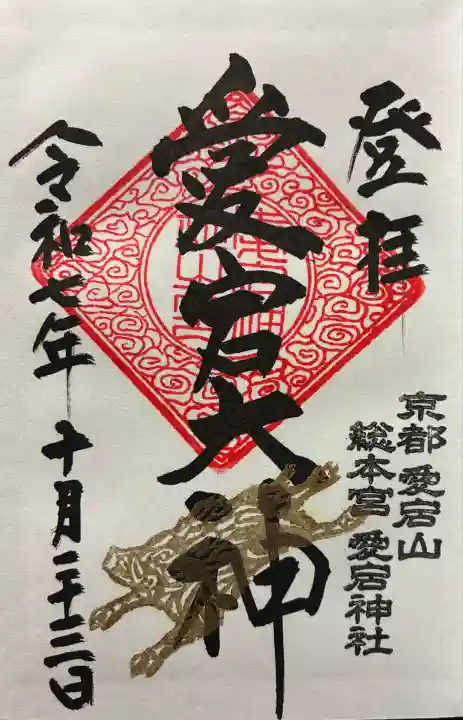 登拝
京都愛宕山
総本宮 愛宕神社
愛宕大神
令和七年十月二十三日